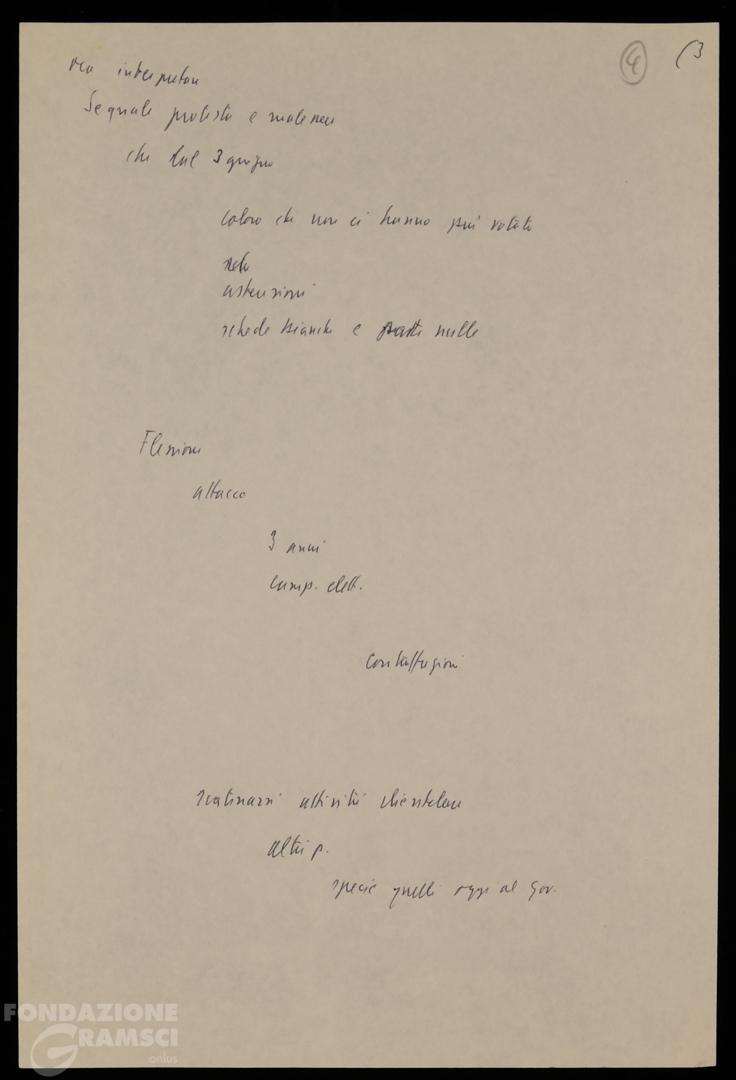 4 (3
ma interpretare
Segnale protesta e malessere
che dal 3 giugno
coloro che non ci hanno più votato
astensioni
schede bianche e nulle
Flessione
attacco
3 anni
camp. elett.
Contraffazioni
scatenarsi attività clientelare
altri p.
specie quelli oggi al gov.
FONDAZIONE
GRAMSCI
onlus